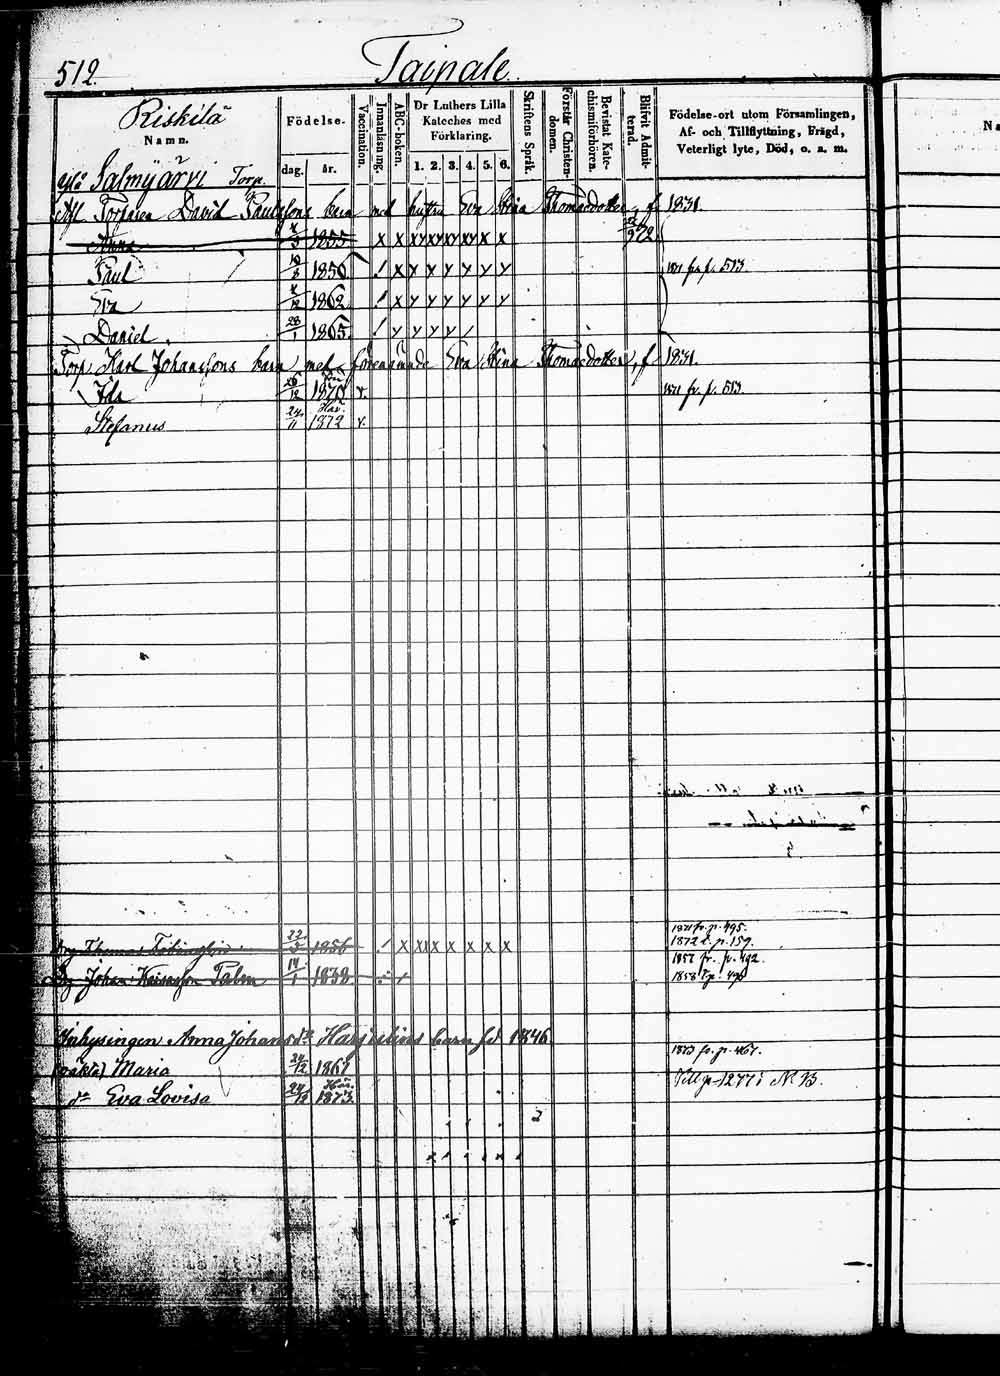 512.
Taipale.
Riskilä
Namn.
Födelse.
dag. år.
Vaccination.
Innanläsning.
ABC-boken.
Dr Luthers Lilla
Kateches med
Förklaring.
1. 2. 3. 4. 5. 6.
Skriftens Språk.
Förstår Christen-
domen.
Bevistat Kate-
chismiförhören.
Blifvit Admit-
terad.
Födelse-ort utom Församlingen,
Af- och Tillflyttning, Frägd,
Veterligt lyte, Död, o. s. m.
Na
Salmijärvi Torp.
Afl Torparen David Paulssons barn med hustru Eva Stina Thomasdotter, f 1831.
Anna 1855 x x xy xy xy xy x x
Paul 10/3 1856 / x y y y y y y 1871 fr. p. 513.
Eva 4/12 1862 / x y y y y y y
Daniel 28/1 1865 / y y y y /
Torp. Karl Johanssons barn med förenämnde Eva Stina Thomasdotter, f 1831.
Ida 28/12 1870 v. 1871 fr. p. 513.
Stefanus 24/11 1872 v.
1871 fr. p. 495.
Drg Thomas Tobiasson 22/3 1856 / x xx x x x x x 1872 t. p. 159.
1857 fr. p. 492.
Drg Johan Palm 14/1 1838 1858 t. p. 495
Inhysingen Anna Johansdr Harjulins barn fd 1846
1873 fr. p. 467.
(oäkta) Maria 24/12 1867
dº Eva Lovisa 24/12 1873.